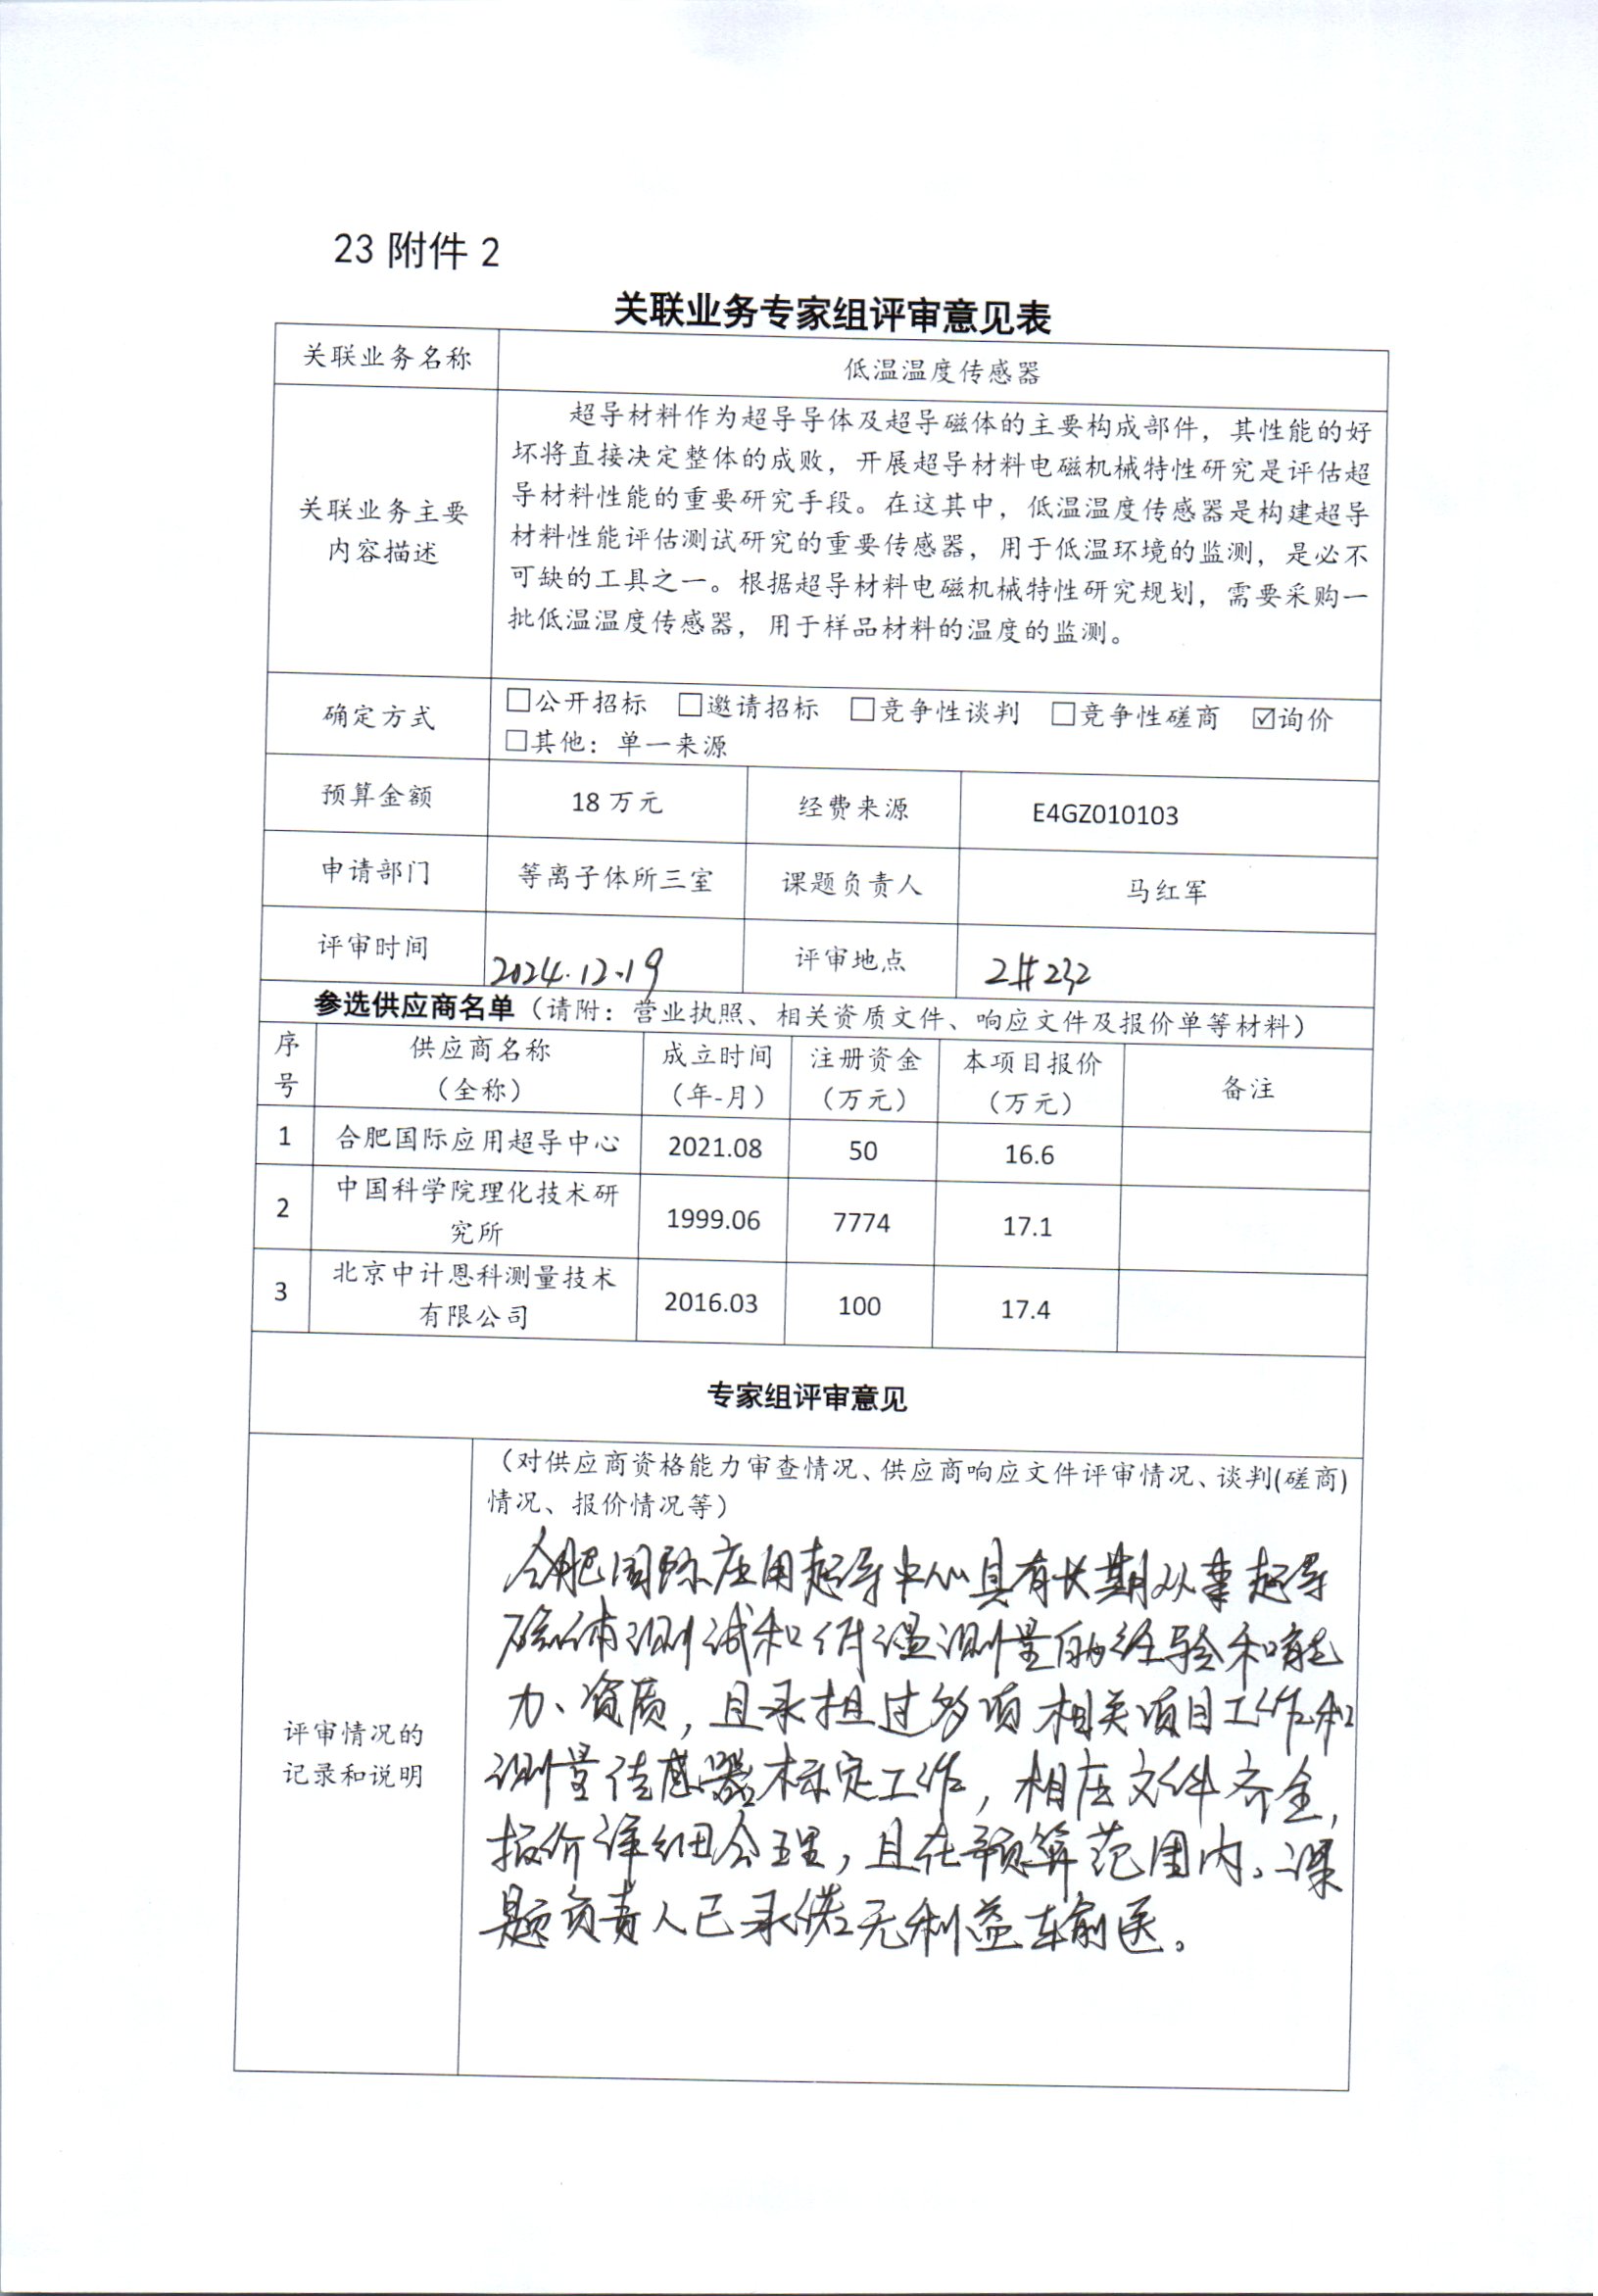 23 附件 2
关联业务专家组评审意见表
关联业务名称
低温温度传感器
关联业务主要
内容描述
超导材料作为超导导体及超导磁体的主要构成部件，其性能的好
坏将直接决定整体的成败，开展超导材料电磁机械特性研究是评估超
导材料性能的重要研究手段。在这其中，低温温度传感器是构建超导
材料性能评估测试研究的重要传感器，用于低温环境的监测，是必不
可缺的工具之一。根据超导材料电磁机械特性研究规划，需要采购一
批低温温度传感器，用于样品材料的温度的监测。
确定方式
□公开招标 □邀请招标 □竞争性谈判 □竞争性磋商 ☑询价
□其他：单一来源
预算金额 18 万元 经费来源 E4GZ010103
申请部门 等离子体所三室 课题负责人 马红军
评审时间 2024.12.19 评审地点 2#232
参选供应商名单（请附：营业执照、相关资质文件、响应文件及报价单等材料）
序
号
供应商名称
（全称）
成立时间
（年-月）
注册资金
（万元）
本项目报价
（万元）
备注
1 合肥国际应用超导中心 2021.08 50 16.6
2 中国科学院理化技术研
究所 1999.06 7774 17.1
3 北京中计恩科测量技术
有限公司 2016.03 100 17.4
专家组评审意见
评审情况的
记录和说明
（对供应商资格能力审查情况、供应商响应文件评审情况、谈判(磋商)
情况、报价情况等）
合肥国际应用超导中心具有长期从事超导
磁体测试和低温测量的经验和能
力、资质，且承担过多项相关项目工作和
测量传感器标定工作，相应文件齐全，
报价详细合理，且在预算范围内。课
题负责人已承诺无利益输送。